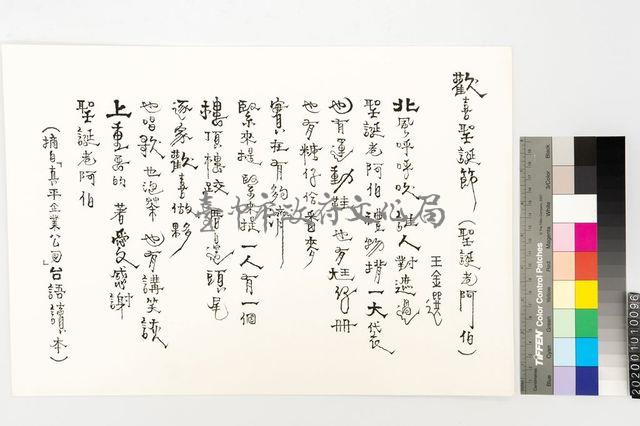 歡喜聖誕節 (聖誕老阿伯)
王金選
北風呼呼吹 人對遮過
聖誕老阿伯 禮物揹一大袋
也有運動鞋 也有尪仔冊
也有糖仔佮香麥
實在有夠濟
緊來提 緊來提 一人有一個
樓頂樓跤 厝邊頭尾
逐家歡喜做夥
也唱歌 也泡茶 也有講笑詼
上重要的 著愛感謝
聖誕老阿伯
(摘自「真平企業公司」台語讀本)
臺中市政府文化局
Black
3/Color
White
Magenta
Red
Yellow
Green
Cyan
Blue
TIFFEN Color Control Patches
20200101009